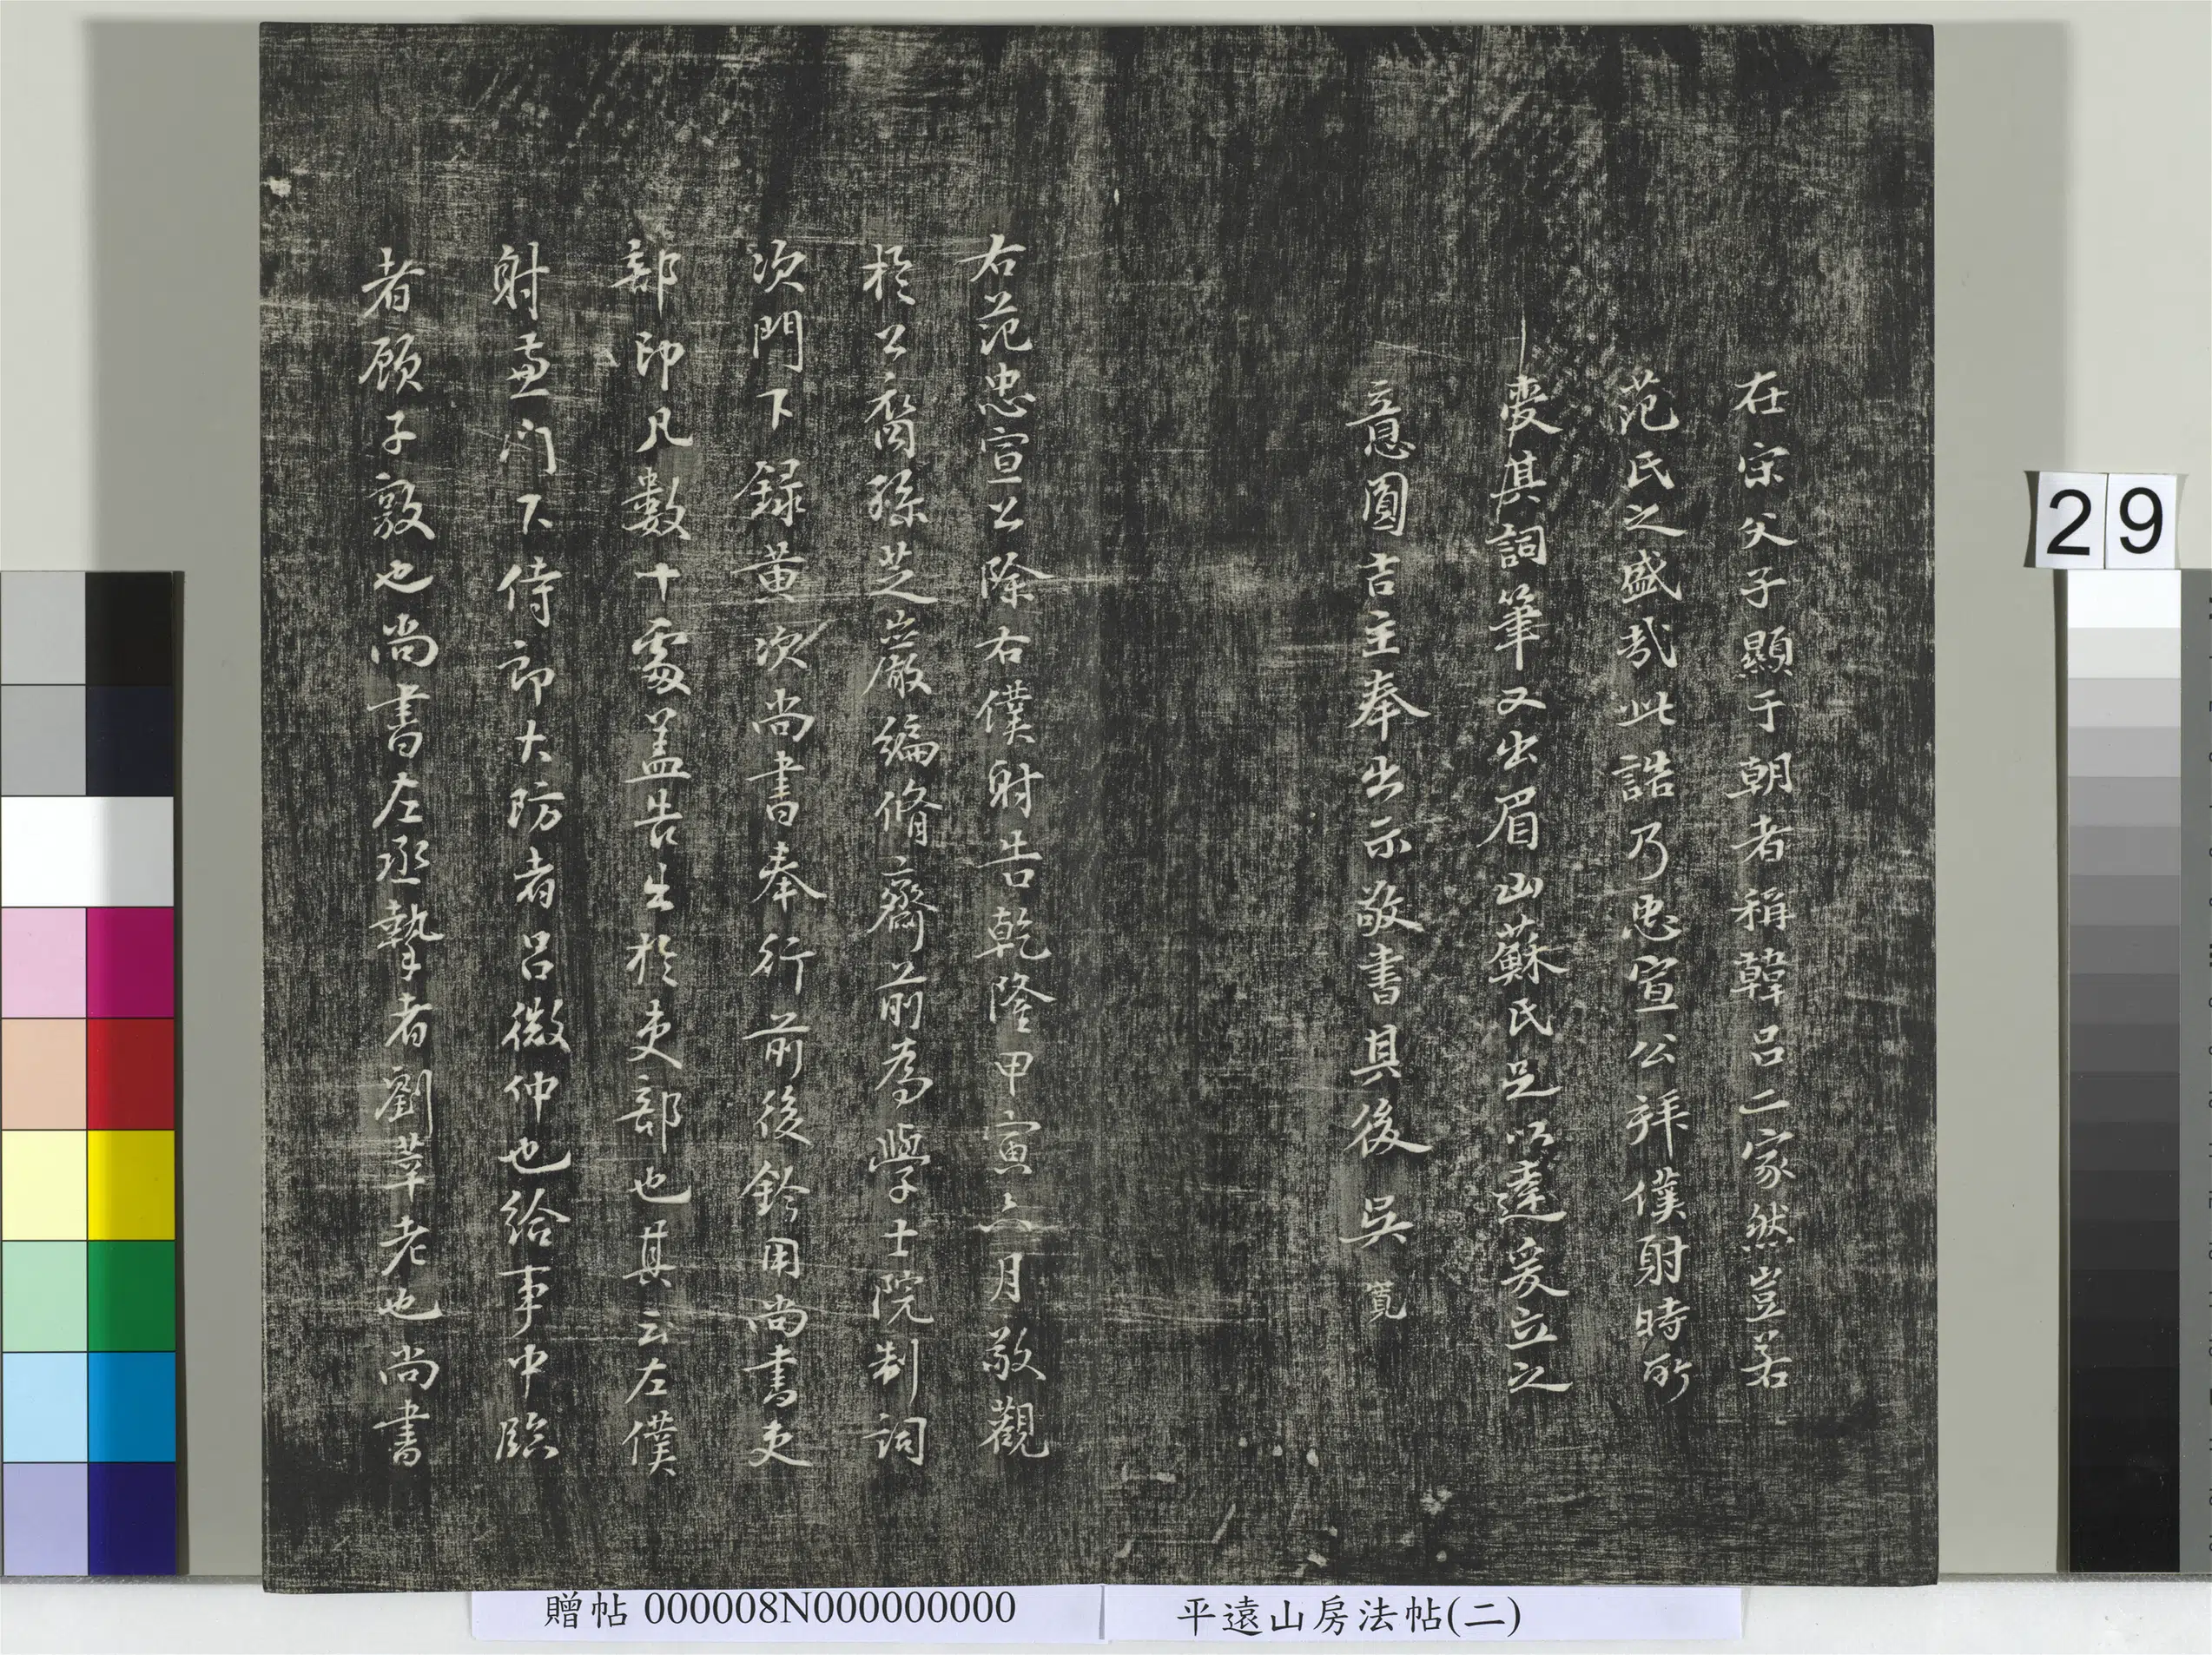 在宋父子顯于朝者稱韓呂二家然豈若
范氏之盛哉此誥乃忠宣公拜僕射時所
受其詞筆又出眉山蘇氏足以達爰立之
意圓吉主奉出示敬書其後吳 寬
右范忠宣公除右僕射告乾隆甲寅六月敬觀
於公裔孫芝巖編脩齋前為學士院制詞
次門下録黄次尚書奉行前後鈐用尚書吏
部印凡數十處盖告出於吏部也其云左僕
射兼门下侍郎大防者呂微仲也給事中臨
者顧子敦也尚書左丞摯者劉莘老也尚書
29
贈帖 000008N000000000
平遠山房法帖(二)